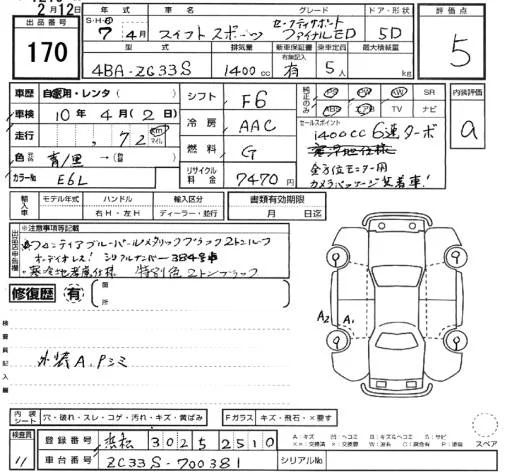 2月12日
出品番号
170
年式
車名
グレード
ドア・形状
評価点
S・H・R
7年 4月
スイフトスポーツ
セーフティサポート
ファイナルED
5D
5
型式
排気量
新車保証書
乗車定員
最大積載量
4BA-ZC33S
1400cc
有無記入
有
5人
kg
車歴
自家用・レンタ
シフト
F6
純正のみ
PS
PW
AW
SR
ABS
エアB
TV
ナビ
内装評価
a
車検
10年 4月(2日)
走行
72
km
マイル
冷房
AAC
セールスポイント
1400cc 6速ターボ
寒冷地仕様
全方位モニター用
カメラパッケージ装着車!
色
青/黒
燃料
G
カラーNo
E6L
リサイクル料金
7470円
輸入車
モデル年式
ハンドル
輸入区分
右H・左H
ディーラー・並行
書類有効期限
月 日迄
出品店申告欄
※注意事項等記載欄
フロンティアブルーパールメタリックブラック2トンルーフ
オーディオレス! シリアルナンバー384号車
寒冷地考慮仕様 特別色2トンブラック
修復歴
有
箇所
検査員記入欄
外装A、Pシミ
A2
A1
9
9
9
9
内装シート
穴・破れ・スレ・コゲ・汚れ・キズ・黄ばみ
Fガラス
キズ・飛石・×要す
検査員
11
登録番号
浜松 302 5 2510
車台番号
ZC33S-700381
シリアルNo
スペア